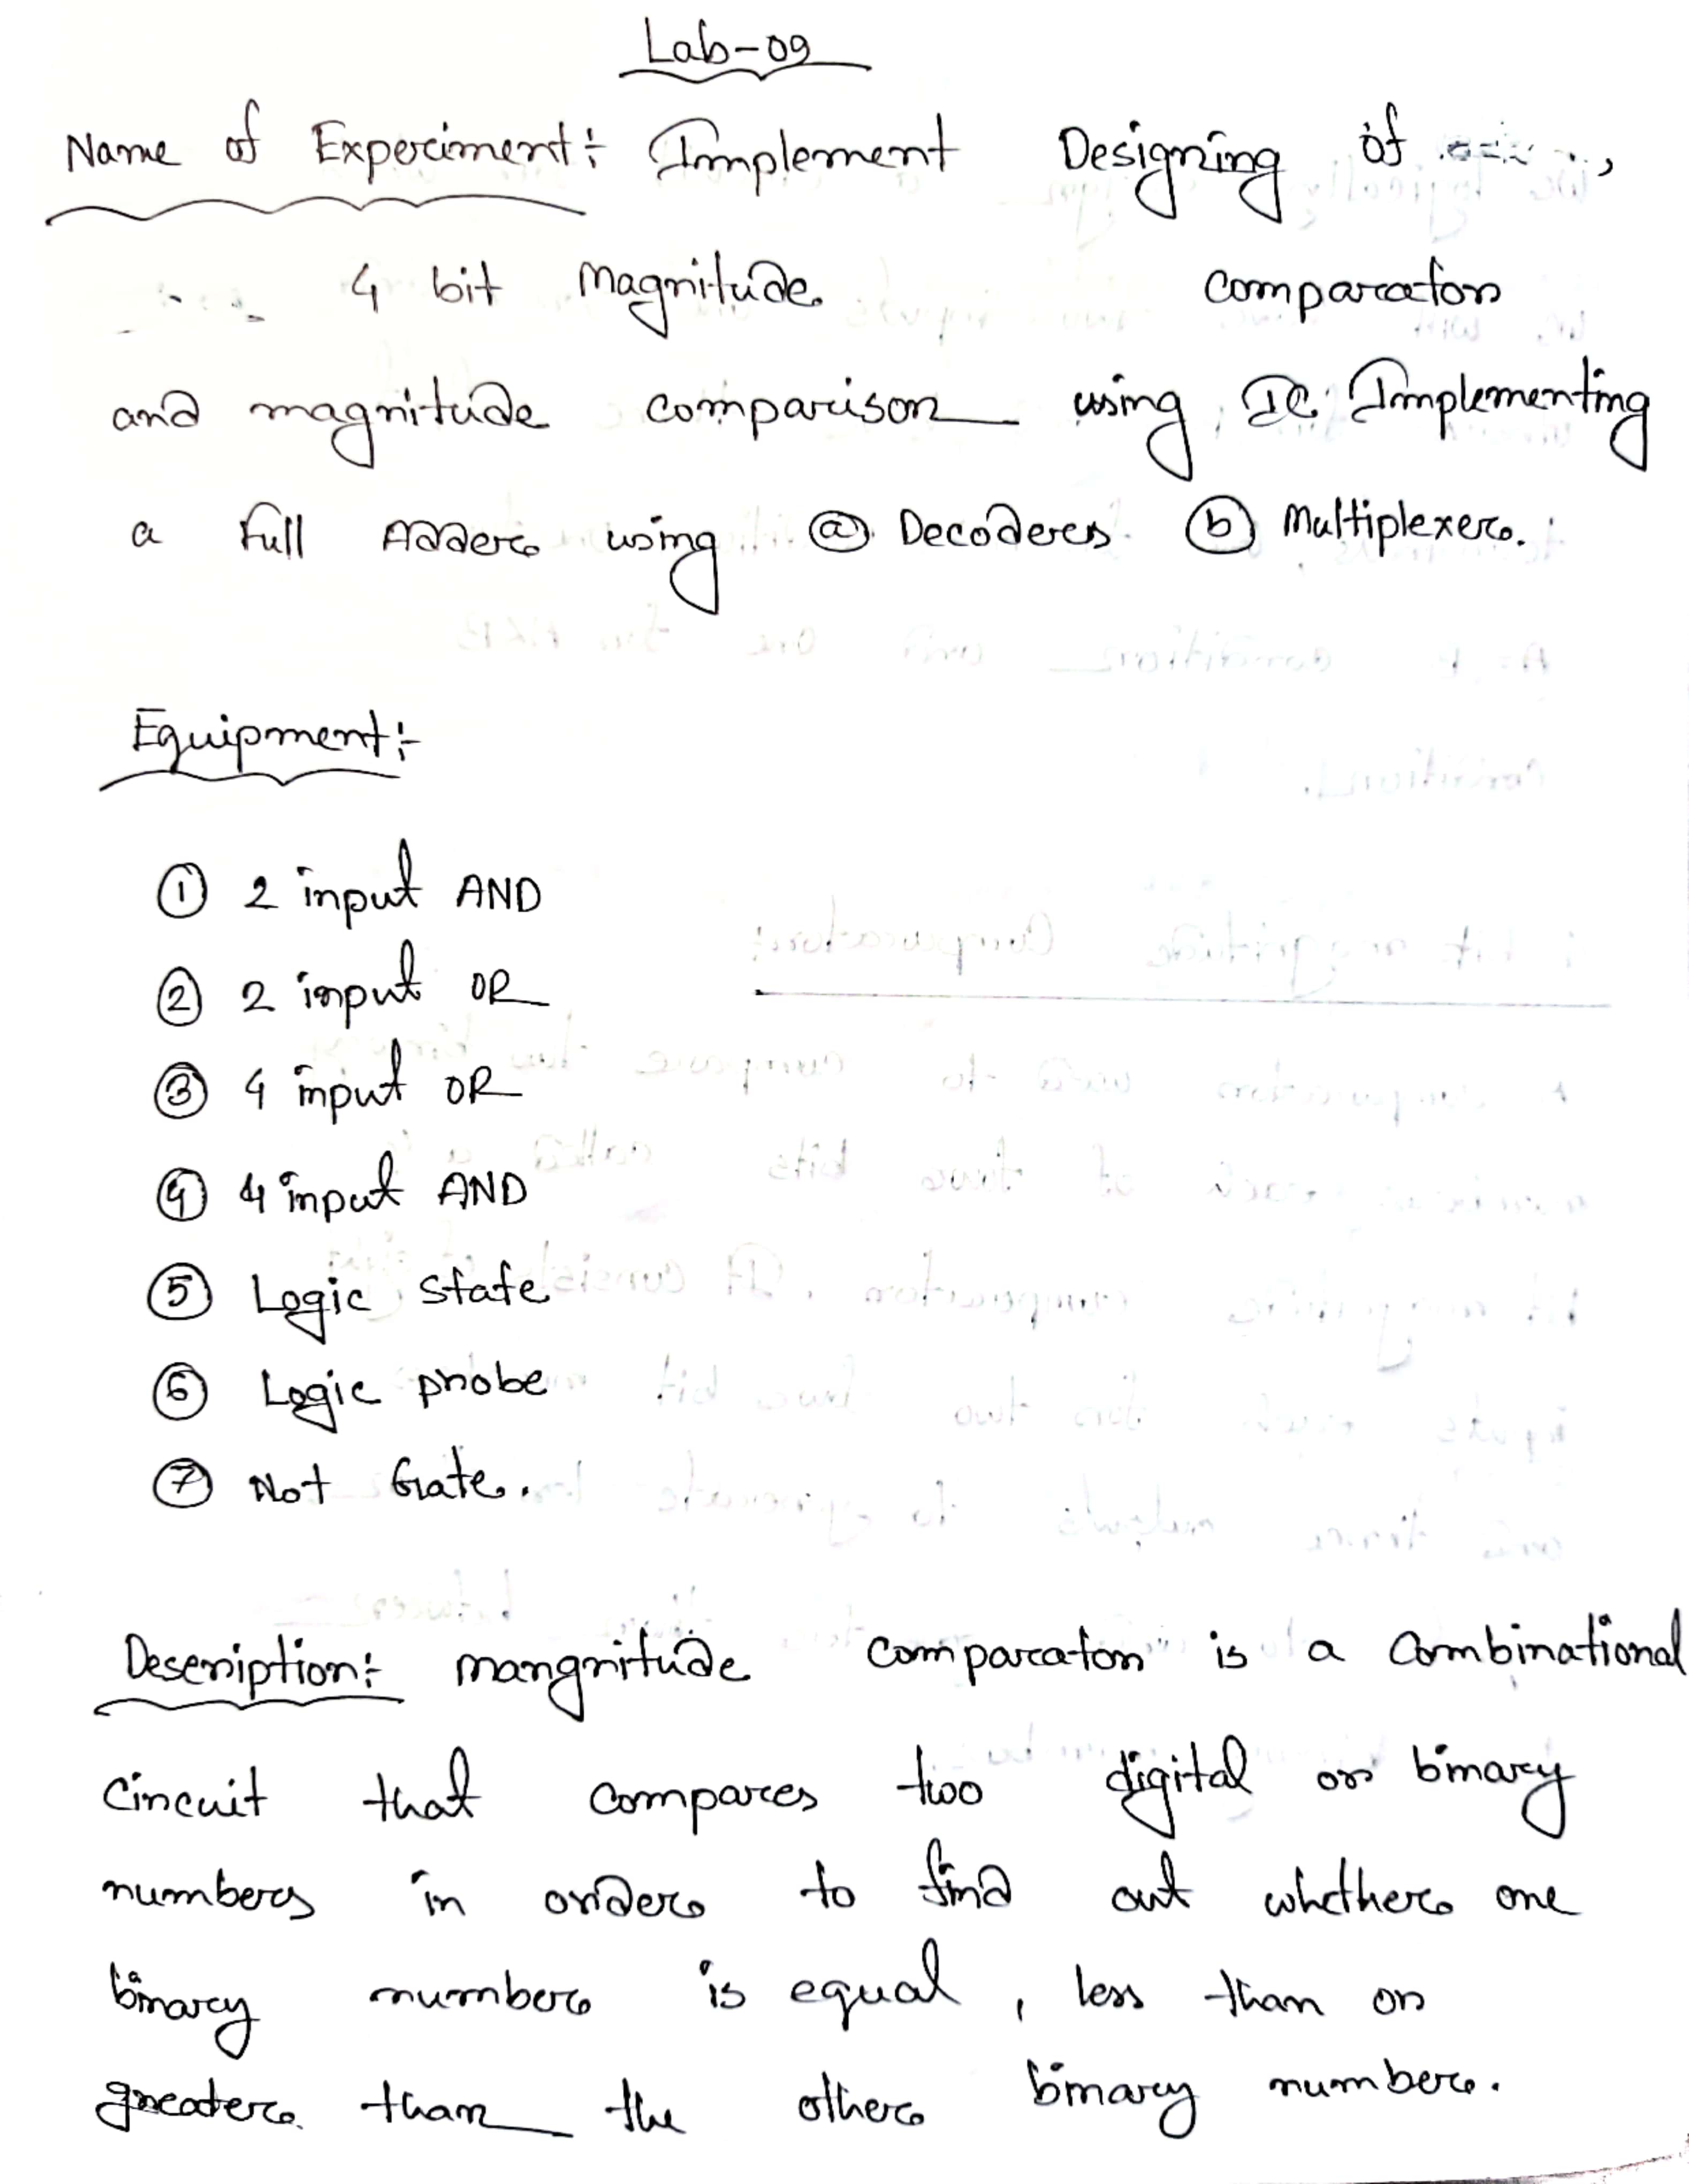 Lab-09
Name of Experiment: Implement Designing of ,
4 bit Magnitude comparator
and magnitude comparison using IC Implementing
a Full Adder using ⓐ Decoders ⓑ Multiplexer.
Equipment:
① 2 input AND
② 2 input OR
③ 4 input OR
④ 4 input AND
⑤ Logic state
⑥ Logic probe
⑦ Not Gate.
Description: mangnitude comparator is a combinational
circuit that compares two digital or binary
numbers in order to find out whether one
binary number is equal, less than or
greater than the other binary number.